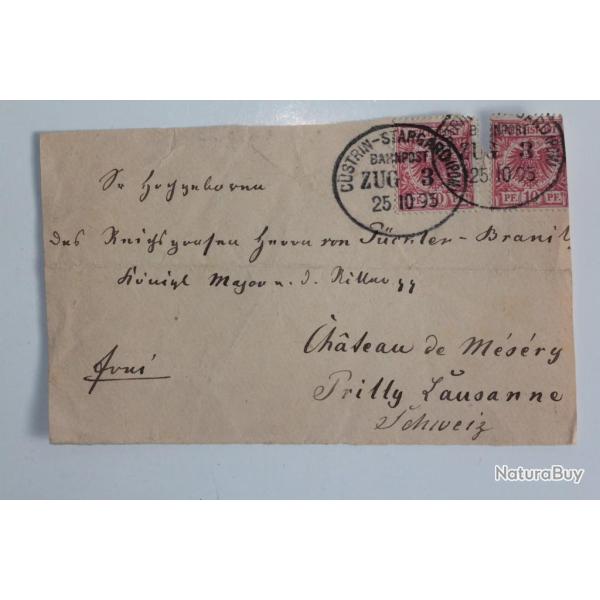 CÜSTRIN-STARGARD (POM)
BAHNPOST
ZUG 3
25 10 95
BAHNPOST
ZUG 3
25 10 95
10 PF
PF 10 PF
Sr Hochgeboren
des Reichsgrafen Herrn von Pückler-Branitz
Königl Major a. d. Ritter pp
frei
Château de Méséry
Prilly Lausanne
Schweiz
NaturaBuy